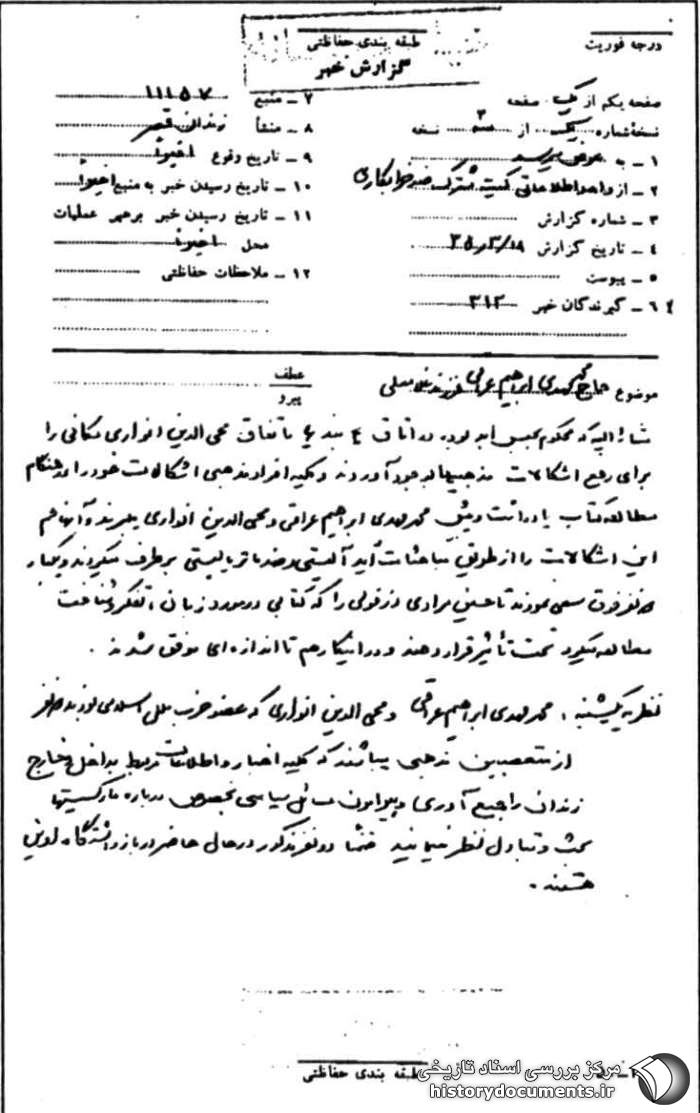 درجه فوریت
طبقه بندی حفاظتی
گزارش خبر
صفحه یکم از یک صفحه
نسخه شماره یک از سه نسخه
۱ ـ به عرض میرسد
۲ ـ از واحد اطلاعاتی کمیته مشترک ضد خرابکاری
۳ ـ شماره گزارش
۴ ـ تاریخ گزارش ۳۵/۳/۱۸
۵ ـ پیوست
۶ ـ گیرندگان خبر ۳۱۲
۷ ـ منبع ۱۱۱۵۷
۸ ـ منشأ زندان قصر
۹ ـ تاریخ وقوع اخیراً
۱۰ ـ تاریخ رسیدن خبر به منبع اخیراً
۱۱ ـ تاریخ رسیدن خبر برهبر عملیات
محل اخیراً
۱۲ ـ ملاحظات حفاظتی
موضوع حاج مهدی ابراهیم عراقی فرزند
عطف
پیرو
مشارالیه که محکوم بحبس ابد بوده در اتاق ۴ بند ۶ با تفاق محی الدین انواری مکانی را
برای رفع اشکالات مذهبیها بوجود آوردند و کلیه افراد مذهبی اشکالات خود را در هنگام
مطالعه کتاب یادداشت و پیش محمد مهدی ابراهیم عراقی و محی الدین انواری میبرند و آنها هم
این اشکالات را از طریق مباحثات ایدآلیستی و ضد ماتریالیستی برطرف میکردند و یکبار
نفر فوق سعی نمودند تا حسین مرادی دزفولی را که کتابی در مورد زبان ، تفکر و شناخت
مطالعه میکرد تحت تأثیر قرار دهند و در اینکار هم تا اندازه ای موفق شدند .
نظریه یکشنبه ، محمد مهدی ابراهیم عراقی و محی الدین انواری که عضو حزب ملل اسلامی بودند
از متعصبین مذهبی میباشند که کلیه اخبار و اطلاعات مربوط بداخل و خارج
زندان را جمع آوری و پیرامون مسائل سیاسی بخصوص درباره مارکسیستها
بحث و تبادل نظر مینمایند ضمناً دو نفر مذکور در حال حاضر در بازداشتگاه اوین
هستند .
طبقه بندی حفاظتی
مرکز بررسی اسناد تاریخی
historydocuments.ir